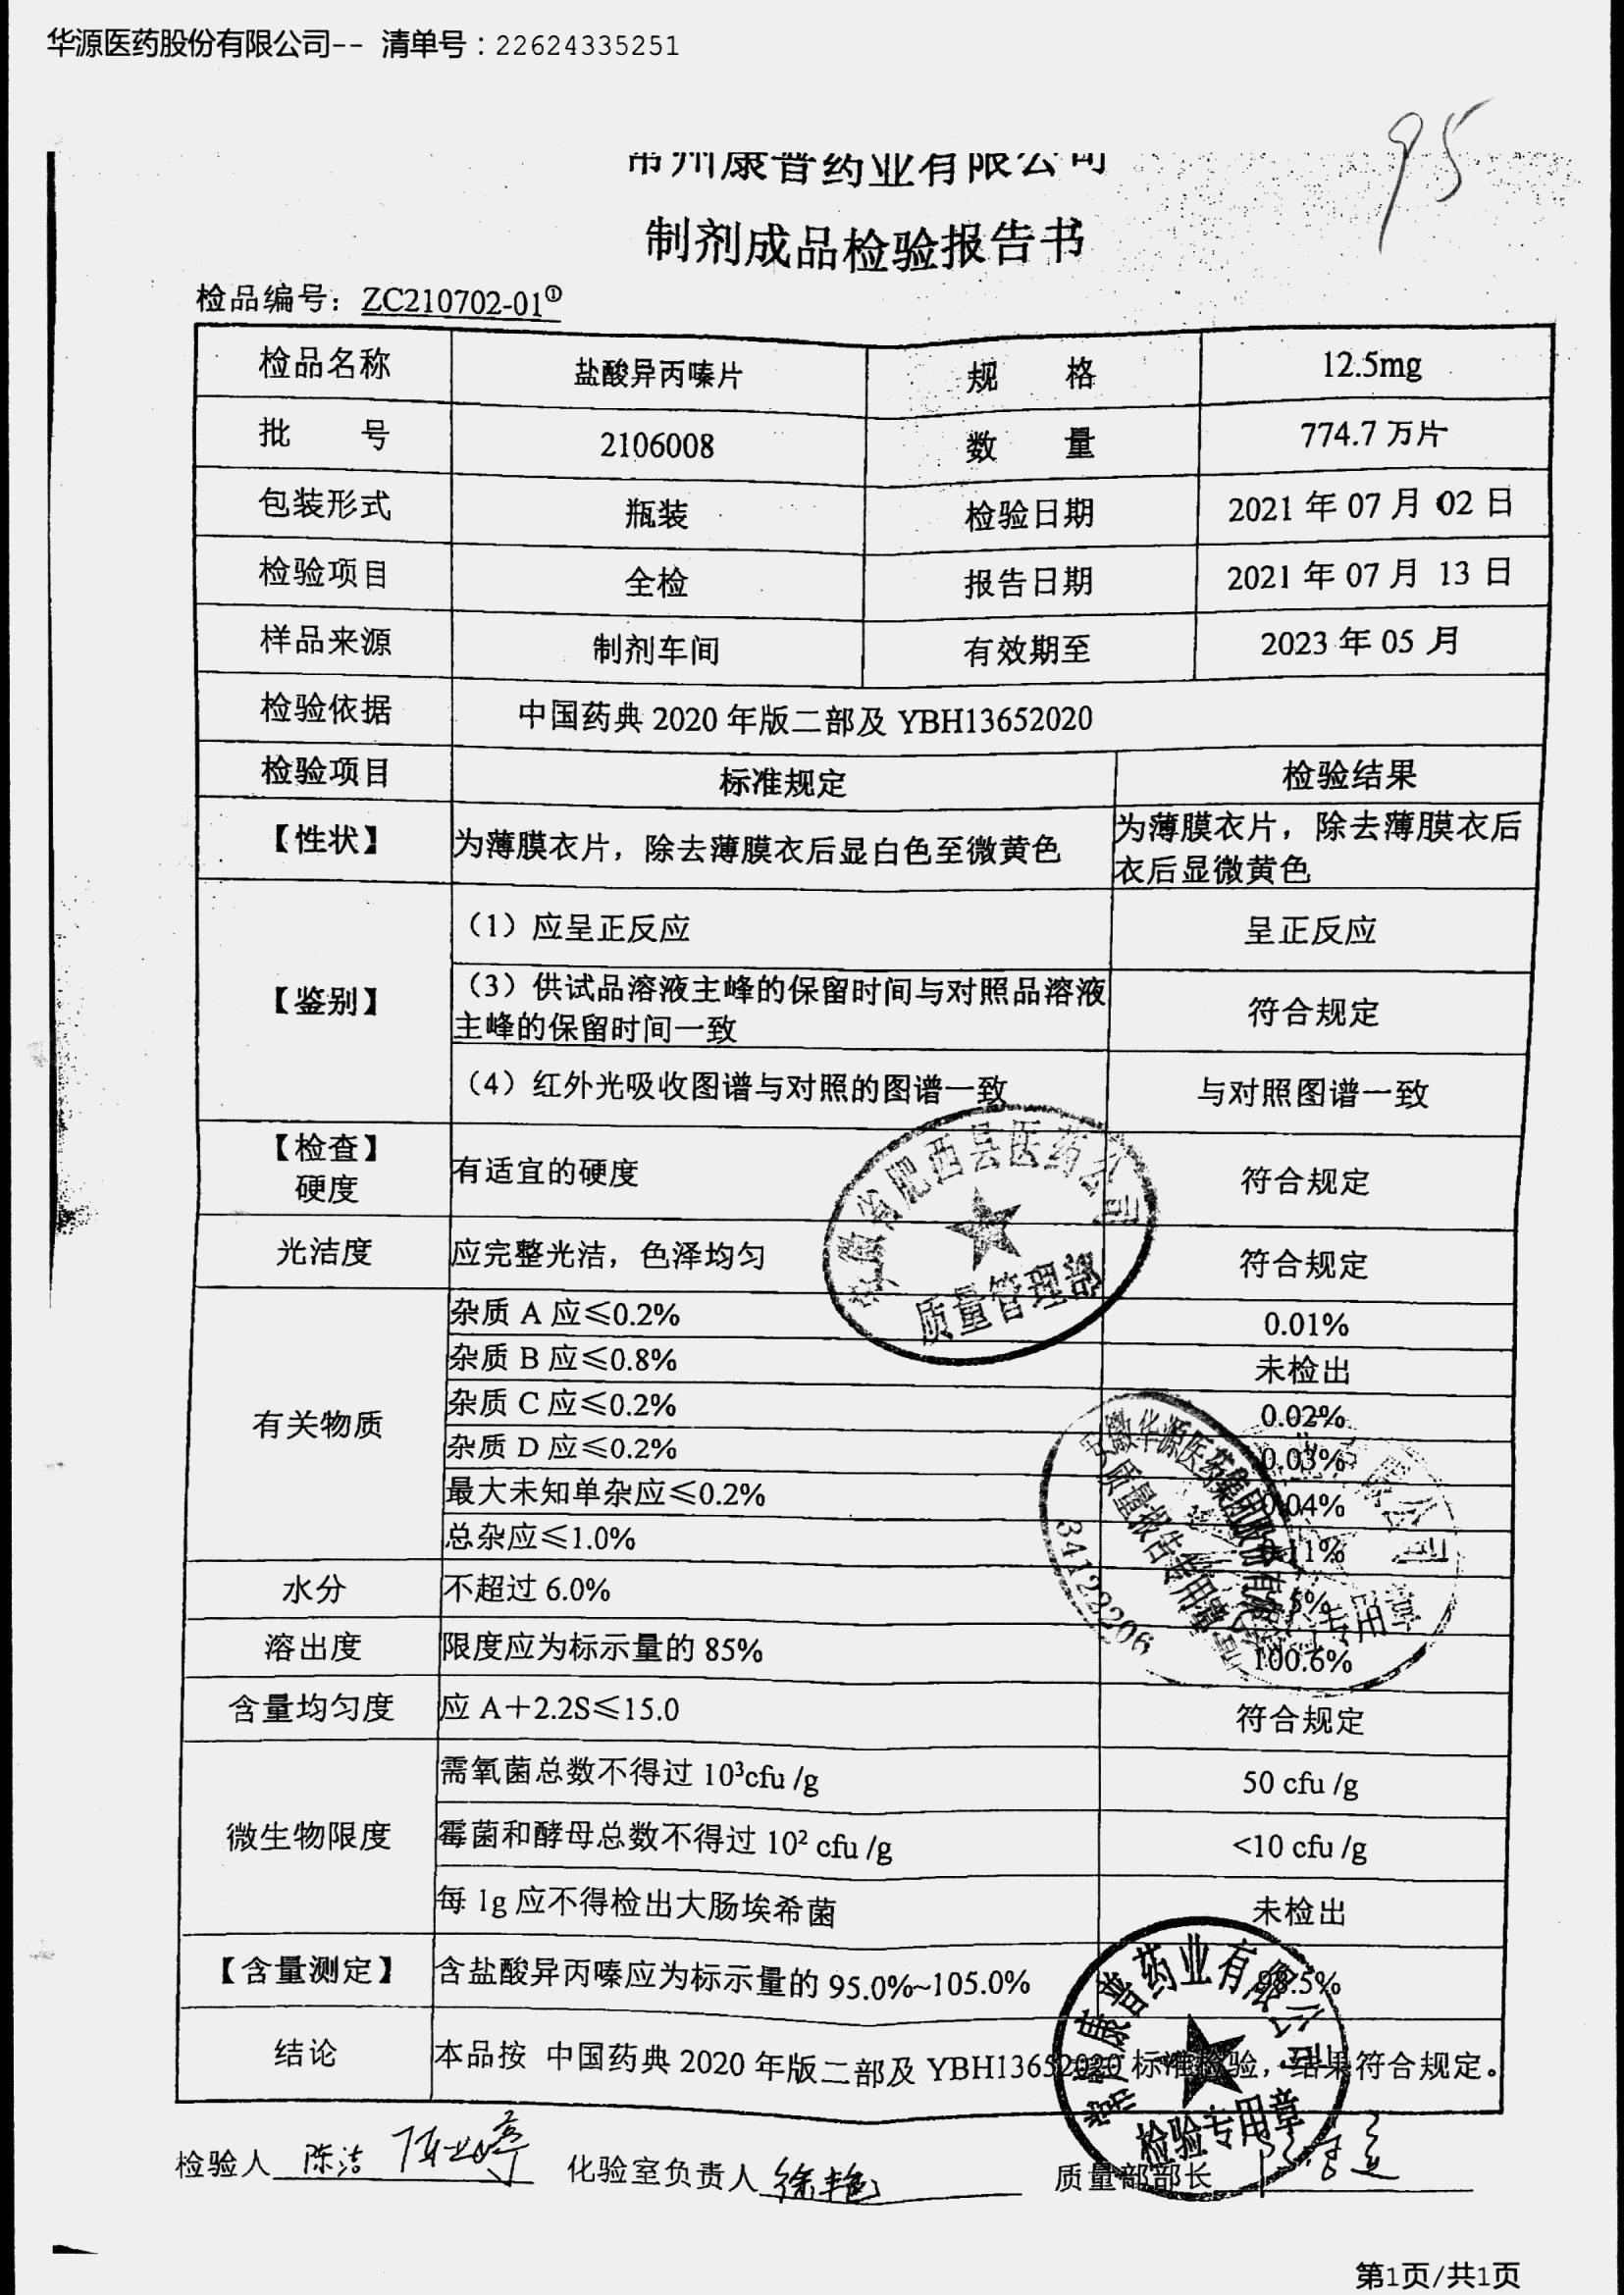 华源医药股份有限公司-- 清单号：22624335251
95
常州康普药业有限公司
制剂成品检验报告书
检品编号：ZC210702-01①
检品名称 盐酸异丙嗪片 规 格 12.5mg
批 号 2106008 数 量 774.7 万片
包装形式 瓶装 检验日期 2021 年 07 月 02 日
检验项目 全检 报告日期 2021 年 07 月 13 日
样品来源 制剂车间 有效期至 2023 年 05 月
检验依据 中国药典 2020 年版二部及 YBH13652020
检验项目 标准规定 检验结果
【性状】 为薄膜衣片，除去薄膜衣后显白色至微黄色 为薄膜衣片，除去薄膜衣后
衣后显微黄色
【鉴别】 （1）应呈正反应 呈正反应
（3）供试品溶液主峰的保留时间与对照品溶液
主峰的保留时间一致 符合规定
（4）红外光吸收图谱与对照的图谱一致 与对照图谱一致
【检查】
硬度 有适宜的硬度 符合规定
光洁度 应完整光洁，色泽均匀 符合规定
有关物质 杂质 A 应≤0.2% 0.01%
杂质 B 应≤0.8% 未检出
杂质 C 应≤0.2% 0.02%
杂质 D 应≤0.2% 0.03%
最大未知单杂应≤0.2% 0.04%
总杂应≤1.0% 0.11%
水分 不超过 6.0% 5%
溶出度 限度应为标示量的 85% 100.6%
含量均匀度 应 A＋2.2S≤15.0 符合规定
微生物限度 需氧菌总数不得过 10³cfu /g 50 cfu /g
霉菌和酵母总数不得过 10² cfu /g <10 cfu /g
每 1g 应不得检出大肠埃希菌 未检出
【含量测定】 含盐酸异丙嗪应为标示量的 95.0%~105.0% 98.5%
结论 本品按 中国药典 2020 年版二部及 YBH13652020 标准检验，结果符合规定。
安徽省肥西县医药公司
质量管理部
安徽华源医药集团股份有限公司
质量报告专用章
34122206
专用章
常州康普药业有限公司
检验专用章
检验人 陈洁 化验室负责人 徐艳 质量部部长
第1页/共1页